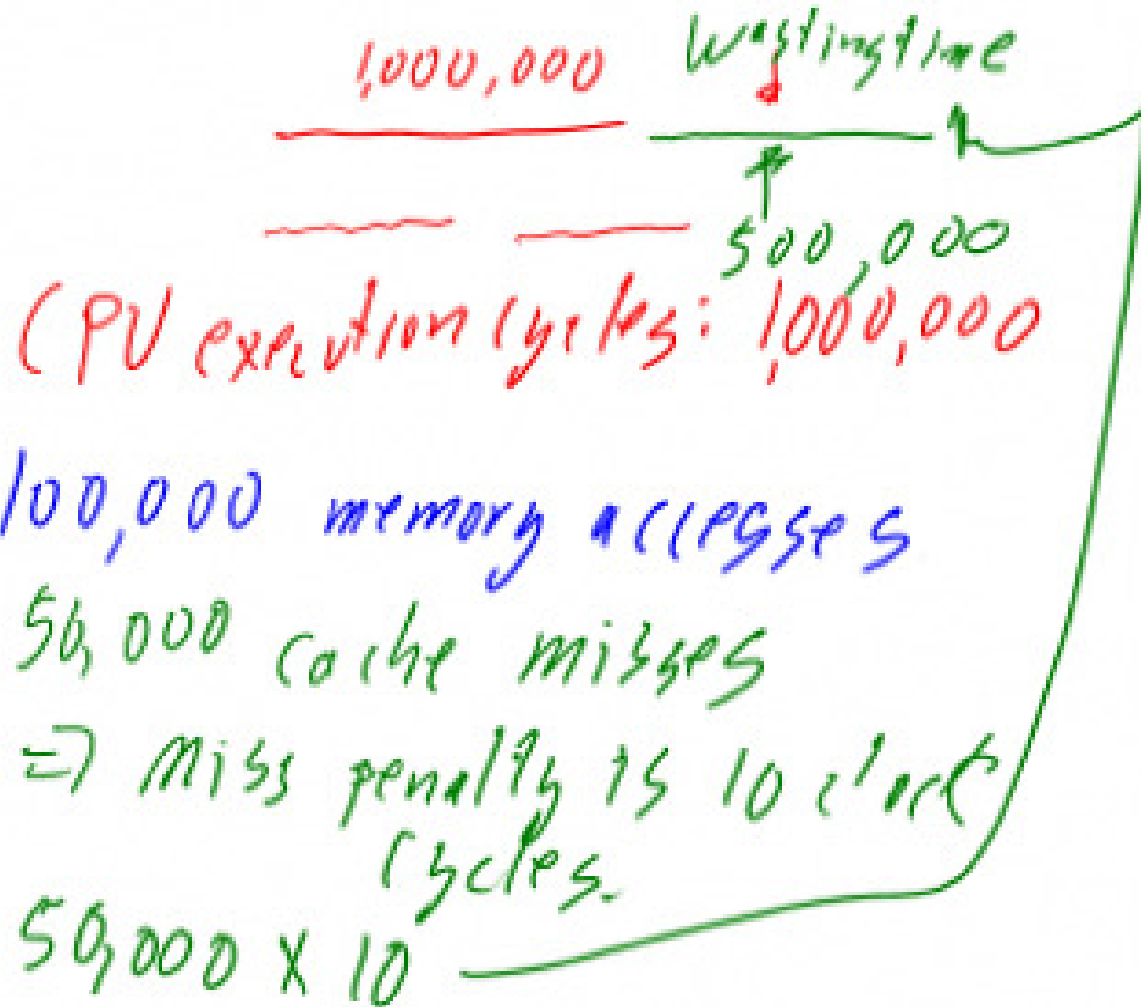 1,000,000 Wasting time
500,000
CPU execution cycles: 1,000,000
100,000 memory accesses
50,000 cache misses
=> Miss penalty is 10 clock
cycles.
50,000 X 10